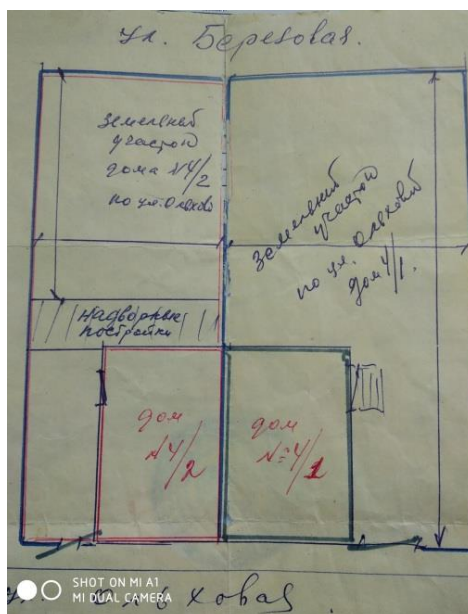 ул. Березовая.
земельный
участок
дома №4/2
по ул. Ольхово
земельный
участок
по ул. Ольховой
дом 4/1.
надворные
постройки
дом
№4/2
дом
№4/1
ул. Ольховая
SHOT ON MI A1
MI DUAL CAMERA